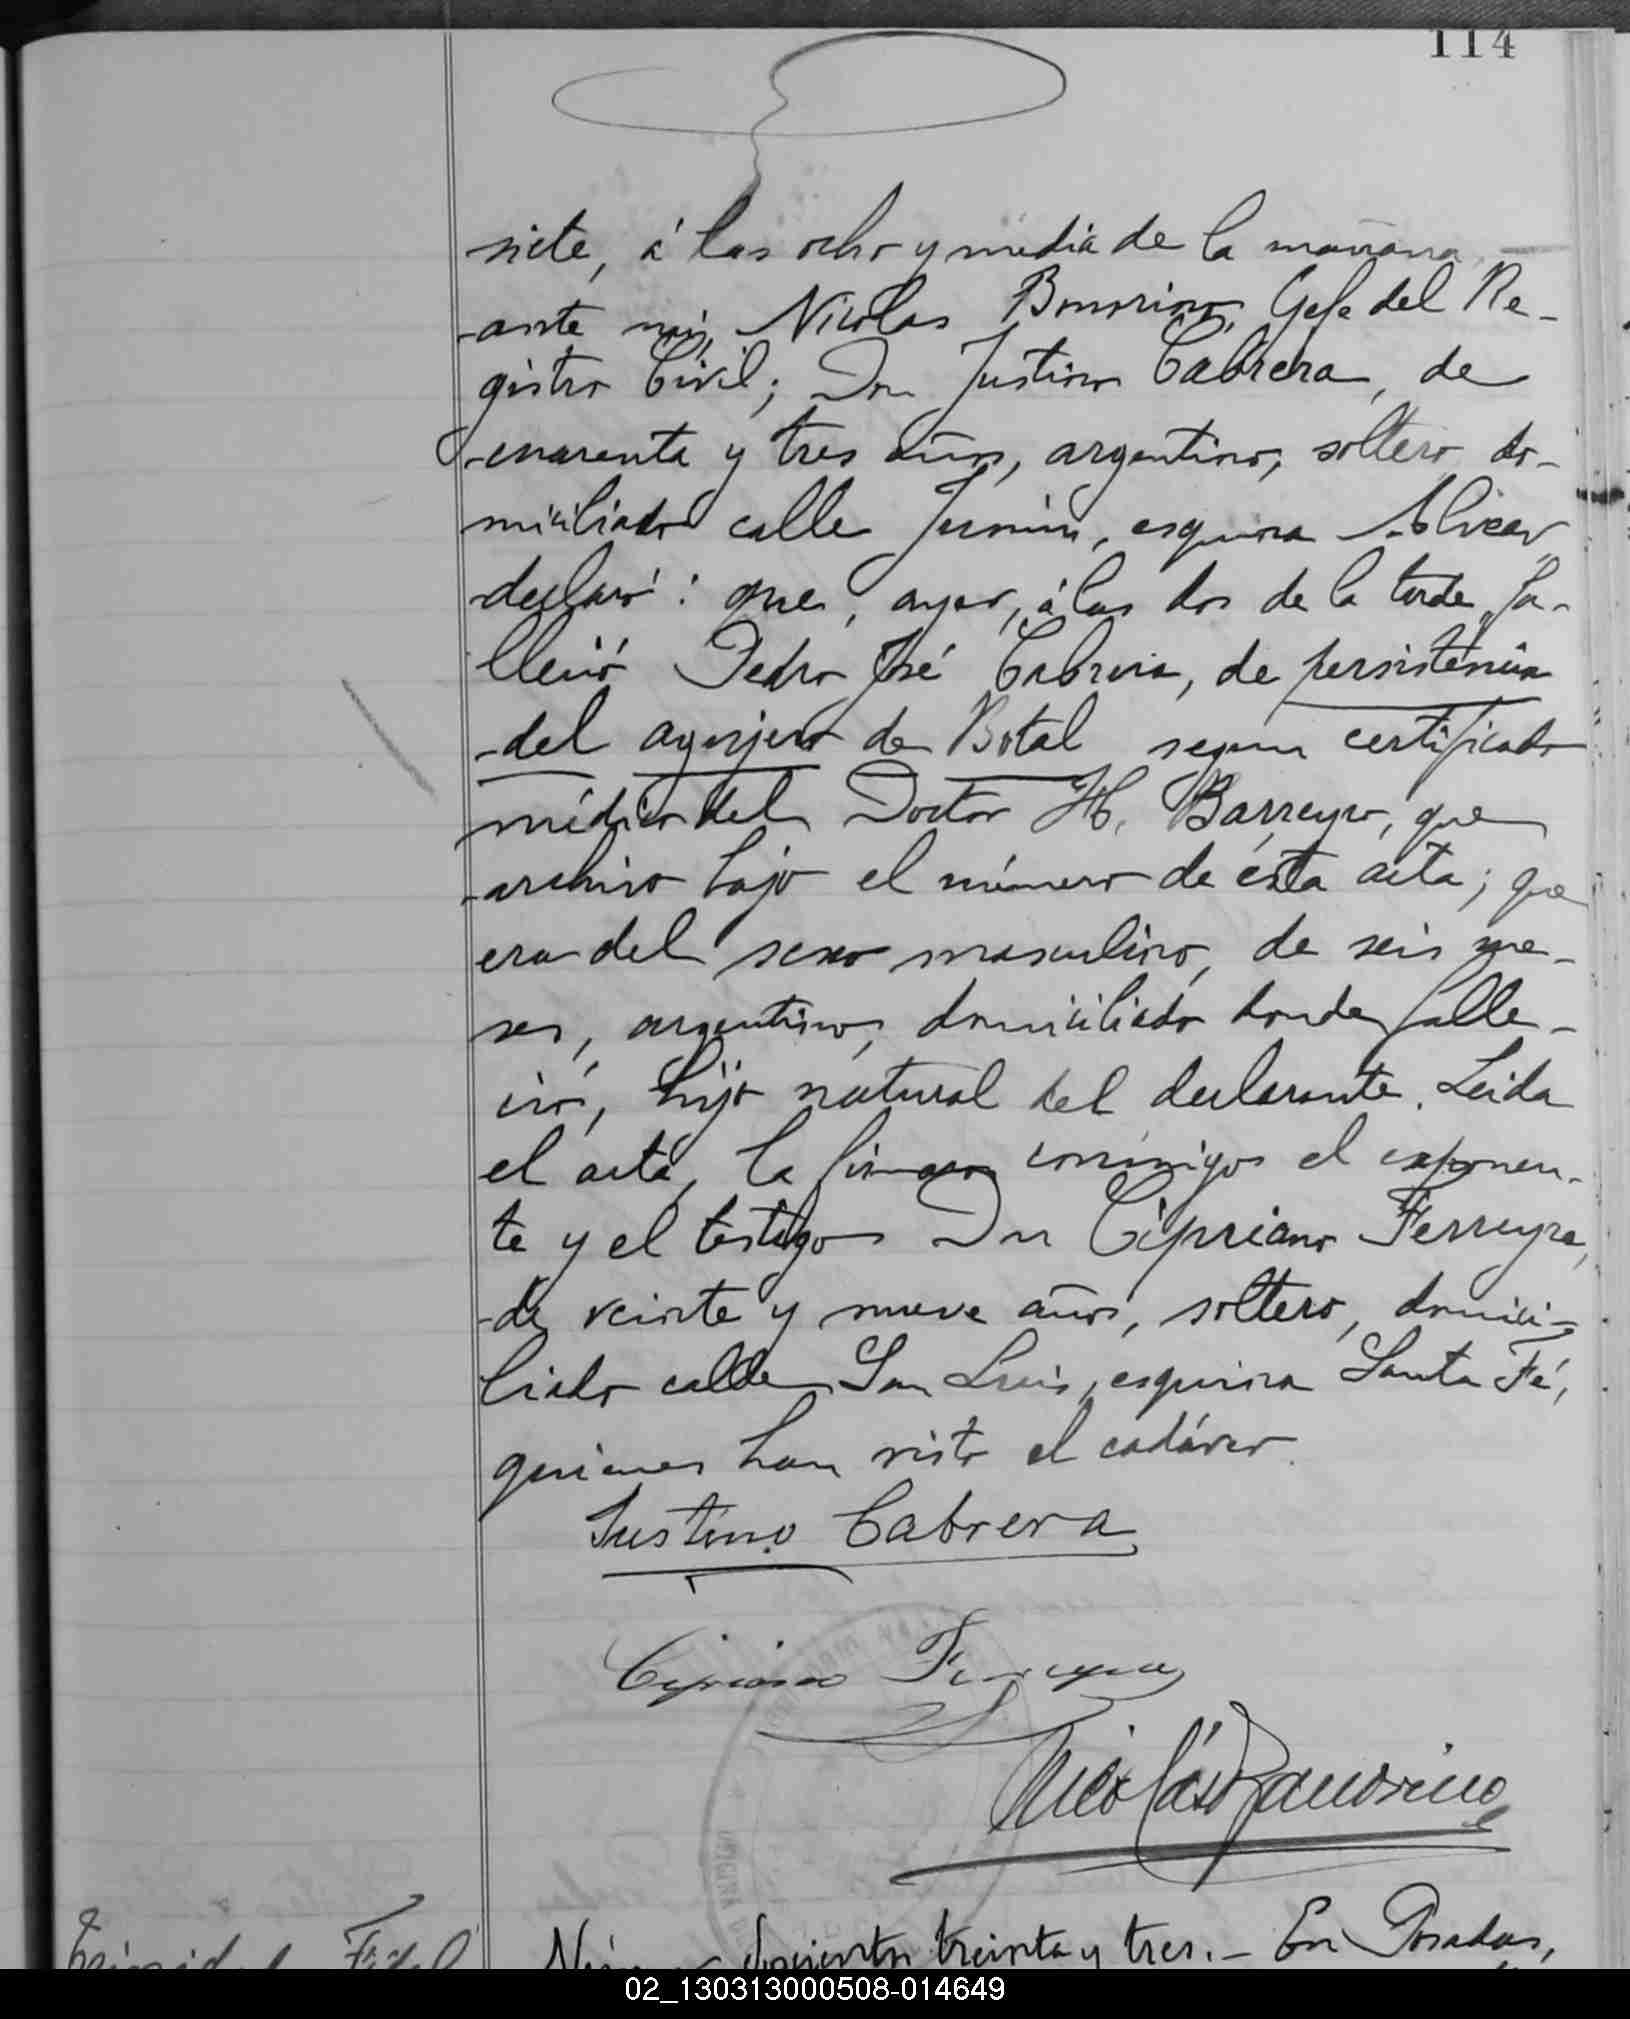 114
siete, á las ocho y media de la mañana,
ante mi, Nicolas Bonorino, Gefe del Re-
gistro Civil; Don Justino Cabrera, de
cuarenta y tres años, argentino, soltero, do-
miciliado calle Junin, esquina Alvear
declaró: que, ayer, á las dos de la tarde, fa-
lleció Pedro José Cabrera, de persistencia
del agujero de Botal segun certificado
médico del Doctor H. Barreyro, que
archivo bajo el número de ésta acta; que
era del sexo masculino, de seis me-
ses, argentino, domiciliado donde falle-
ció, hijo natural del declarante. Leida
el acta, la firmaron conmigo el exponen-
te y el testigo Don Cipriano Ferreyra,
de veinte y nueve años, soltero, domici-
liado calle San Luis, esquina Santa Fé,
quienes han visto el cadáver.
Justino Cabrera
Cipriano Ferreyra
Nicolás Bonorino
Fidel
Número doscientos treinta y tres. - En Posadas,
02_130313000508-014649